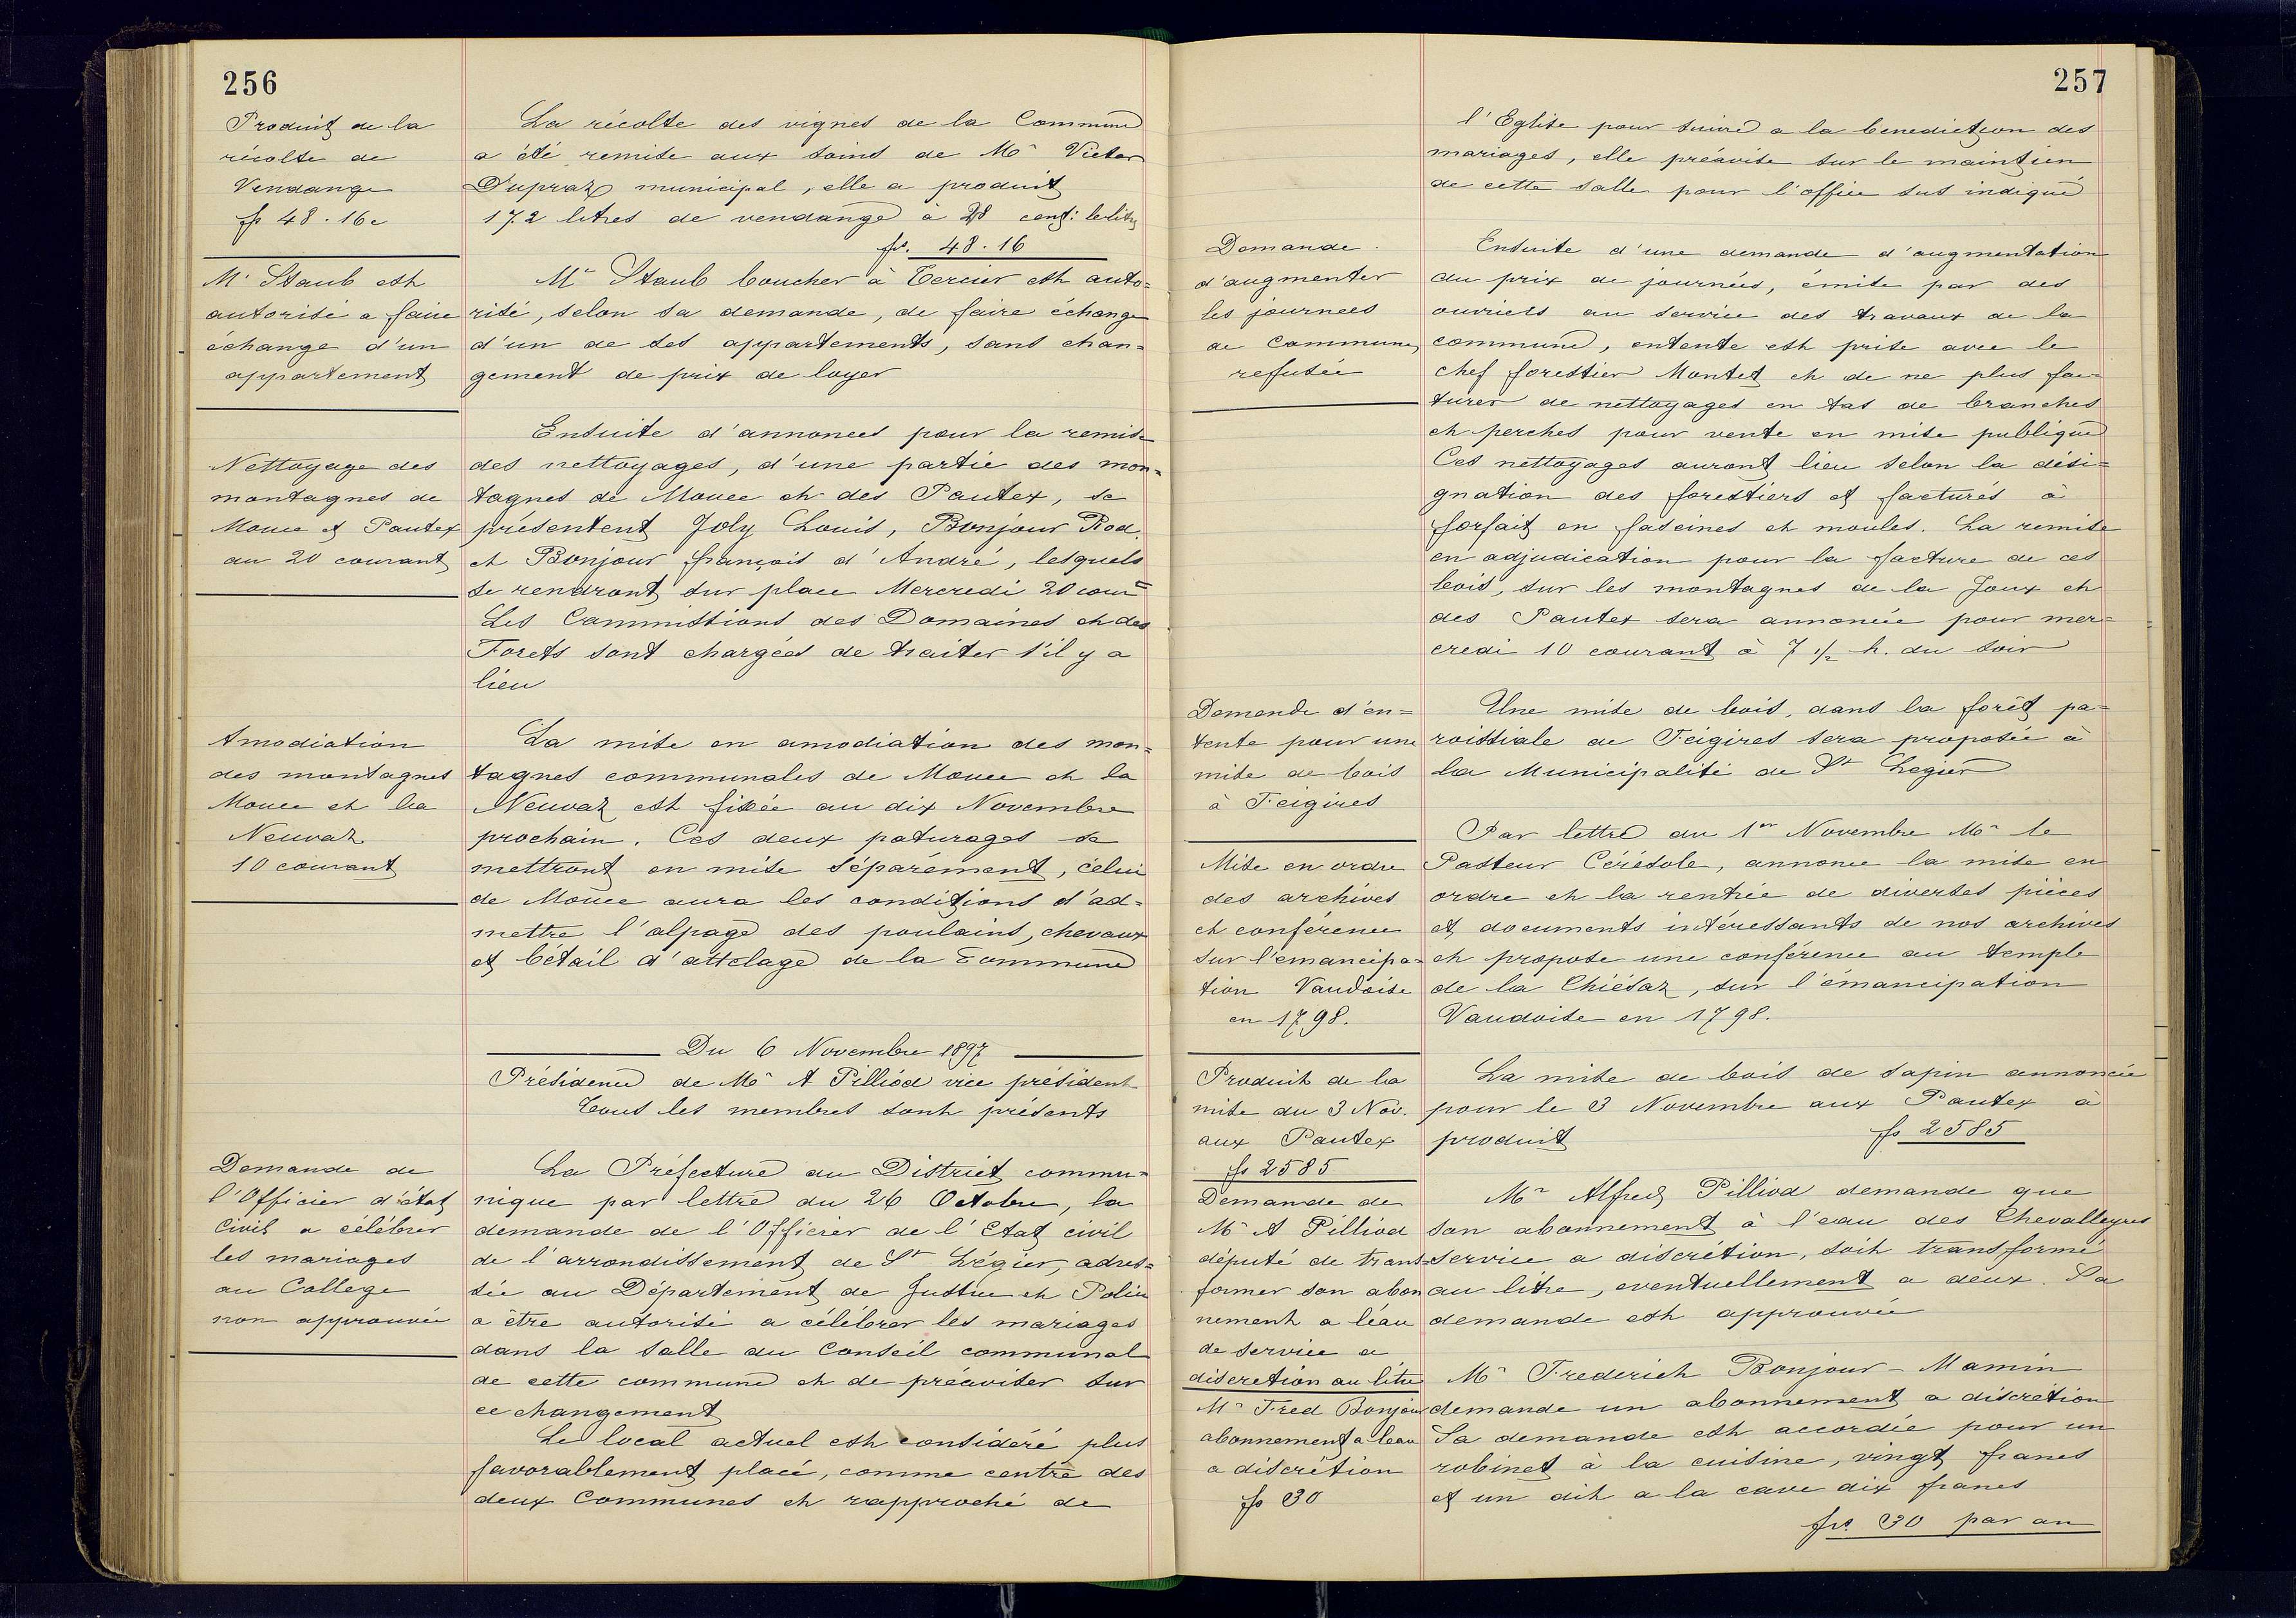 256
Produit de la
récolte de
Vendange
fr 48.16c
La récolte des vignes de la Commune
a été remise aux soins de Mr Victor
Dupraz municipal, elle a produit
172 litres de vendange à 28 cent: le litre
frs. 48.16
Mr Staub est
autorisé a faire
échange d'un
appartement
Mr Staub boucher à Tercier est auto=
risé, selon sa demande, de faire échange
d'un de ses appartements, sans chan=
gement de prix de loyer
Nettoyage des
montagnes de
Mouce et Pautex
au 20 courant
Ensuite d'annonces pour la remise
des nettoyages, d'une partie des mon=
tagnes de Mouce et des Pautex, se
présentent Joly Louis, Bonjour Rod.
et Bonjour françois d'André, lesquels
se rendront sur place Mercredi 20 cour
Les Commissions des Domaines et des
Forets sont chargées de traiter s'il y a
lieu
Amodiation
des montagnes
Mouce et la
Neuvaz
10 courant
La mise en amodiation des mon=
tagnes communales de Mouce et la
Neuvaz est fixée au dix Novembre
prochain. Ces deux paturages se
mettront en mise séparément, célui
de Mouce aura les conditions d'ad=
mettre l'alpage des poulains, chevaux
et bétail d'attelage de la Commune
Du 6 Novembre 1897
Présidence de Mr A Pilliod vice président
Tous les membres sont présents
Demande de
l'Officier d'état
Civil a célébrer
les mariages
au College
non approuvée
La Préfecture du District commu=
nique par lettre du 26 Octobre, la
demande de l'Officier de l'Etat civil
de l'arrondissement de St Légier, adres=
sée au Département de Justice et Police
a être autorisé a célébrer les mariages
dans la salle du Conseil communal
de cette commune et de préaviser sur
ce changement
Le local actuel est considéré plus
favorablement placé, comme centre des
deux Communes et rapproché de
257
l'Eglise pour suivre a la benediction des
mariages, elle préavise sur le maintien
de cette salle pour l'office sus indiqué
Demande
d'augmenter
les journees
de Commune,
refusée
Ensuite d'une demande d'augmentation
du prix de journées, émise par des
ouvriers au service des travaux de la
commune, entente est prise avec le
chef forestier Montet et de ne plus fac=
turer de nettoyages en tas de branches
et perches pour vente en mise publique
Ces nettoyages auront lieu selon la dési=
gnation des forestiers et facturés à
forfait en fascines et moules. La remise
en adjudication pour la facture de ces
bois, sur les montagnes de la Joux et
des Pautex sera annoncée pour mer=
credi 10 courant à 7 1/2 h. du soir
Demande d'en=
tente pour une
mise de bois
à Feigires
Une mise de bois, dans la forêt pa=
roissiale de Feigires sera proposée à
la Municipalité de St Legier
Mise en ordre
des archives
et conférence
sur l'emancipa=
tion Vaudoise
en 1798.
Par lettre du 1er Novembre Mr le
Pasteur Cérésole, annonce la mise en
ordre et la rentrée de diverses pièces
et documents intéressants de nos archives
et propose une conférence au temple
de la Chiésaz, sur l'émancipation
Vaudoise en 1798.
Produit de la
mise du 3 Nov.
aux Pautex
fr 2585
La mise de bois de sapin annoncée
pour le 3 Novembre aux Pautex à
produit fr 2585
Demande de
Mr A Pilliod
député de trans=
former son abon
nement a l'éau
de service a
discretion au litre
Mr Alfred Pilliod demande que
son abonnement à l'eau des Chevalleyres
service a discrétion, soit transformé
au litre, eventuellement a deux. Sa
demande est approuvée
Mr Fred Bonjour
abonnement a leau
a discrétion
fr 30
Mr Frederich Bonjour-Mamin
demande un abonnement a discrétion
Sa demande est accordée pour un
robinet à la cuisine, vingt francs
et un dit a la cave dix francs
frs 30 par an